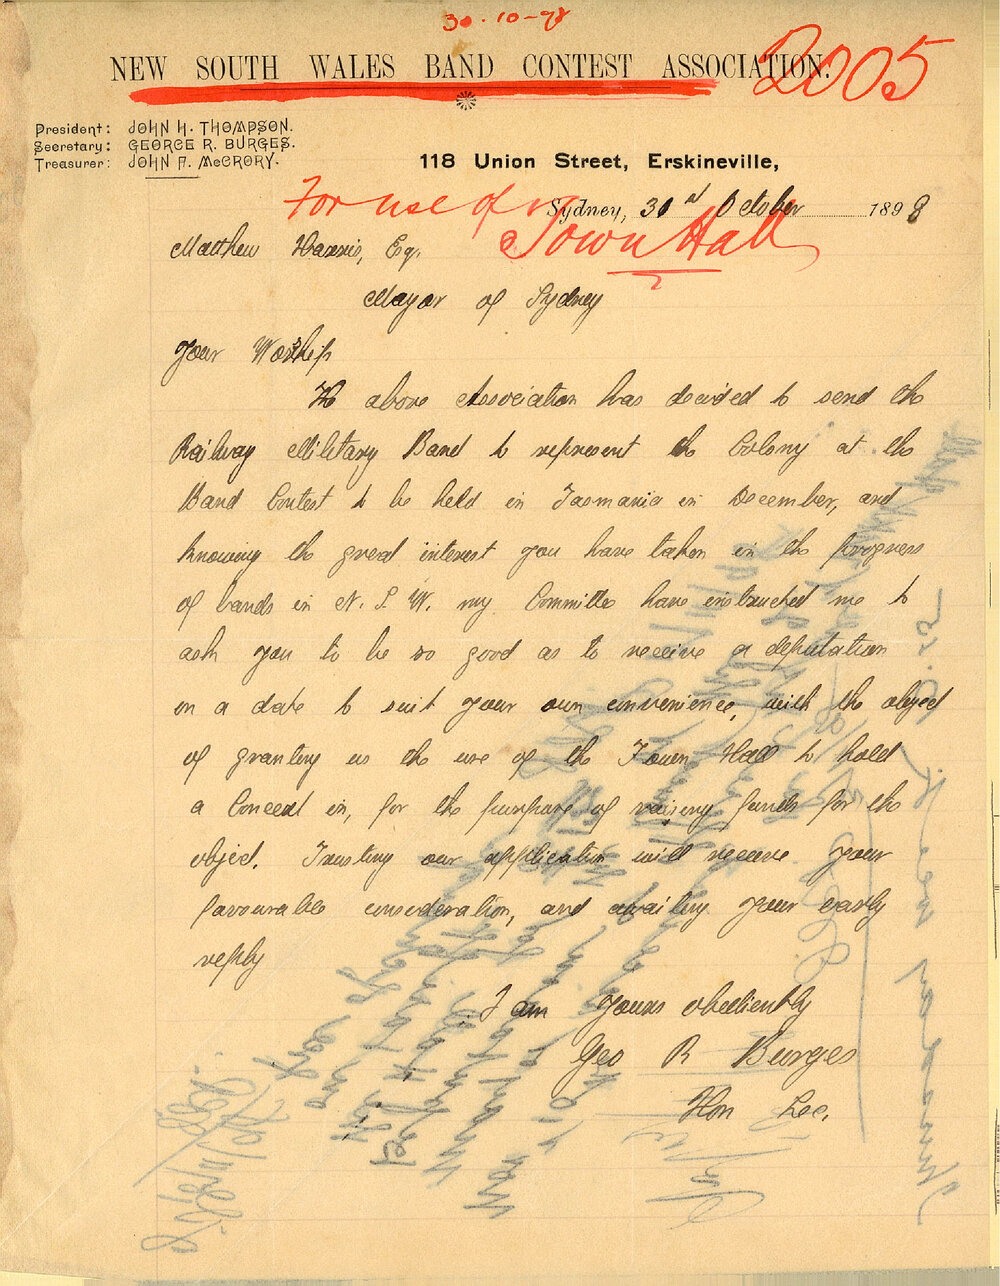 30-10-98
2005
NEW SOUTH WALES BAND CONTEST ASSOCIATION.
President: JOHN H. THOMPSON.
Secretary: GEORGE R. BURGES.
Treasurer: JOHN A. McCRORY.
118 Union Street, Erskineville,
For use of
Sydney, 30 October 1898
Town Hall
Matthew Harris, Esq.
Mayor of Sydney
Your Worship
The above Association has decided to send the
Railway Military Band to represent the Colony at the
Band Contest to be held in Tasmania in December, and
knowing the great interest you have taken in the progress
of bands in N. S. W. my Committee have instructed me to
ask you to be so good as to receive a deputation
on a date to suit your own convenience, with the object
of granting us the use of the Town Hall to hold
a Concert in, for the purpose of raising funds for the
object. Trusting our application will receive your
favourable consideration, and awaiting your early
reply
I am Yours obediently
Geo R Burges
Hon Sec.